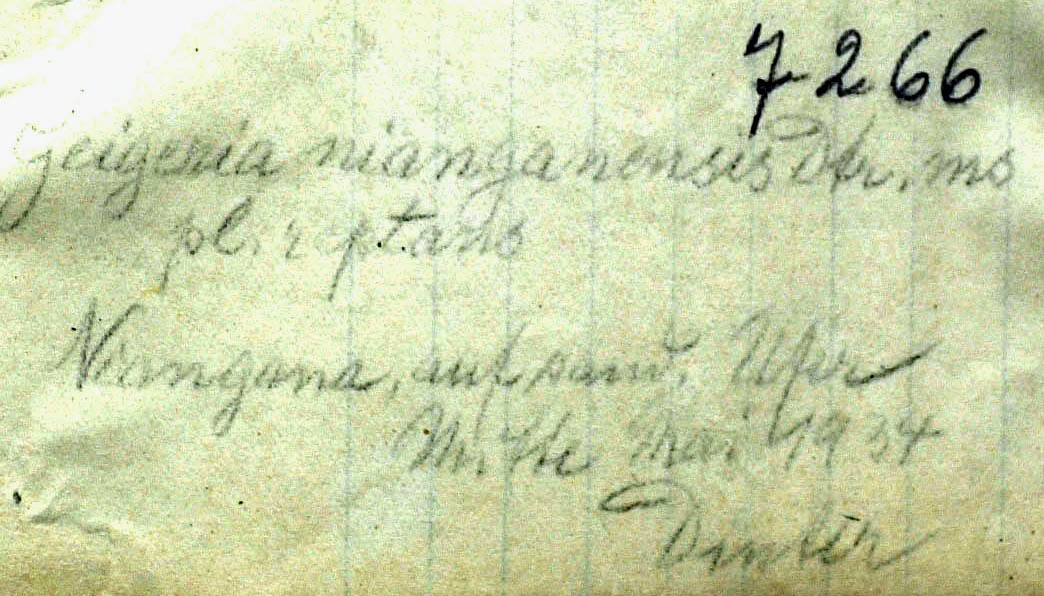 7266
geigeria nianganensis Dtr. ms
pl. reptans
Niangana, auf sand. Ufer
Mitte Mai 1934
Dinter